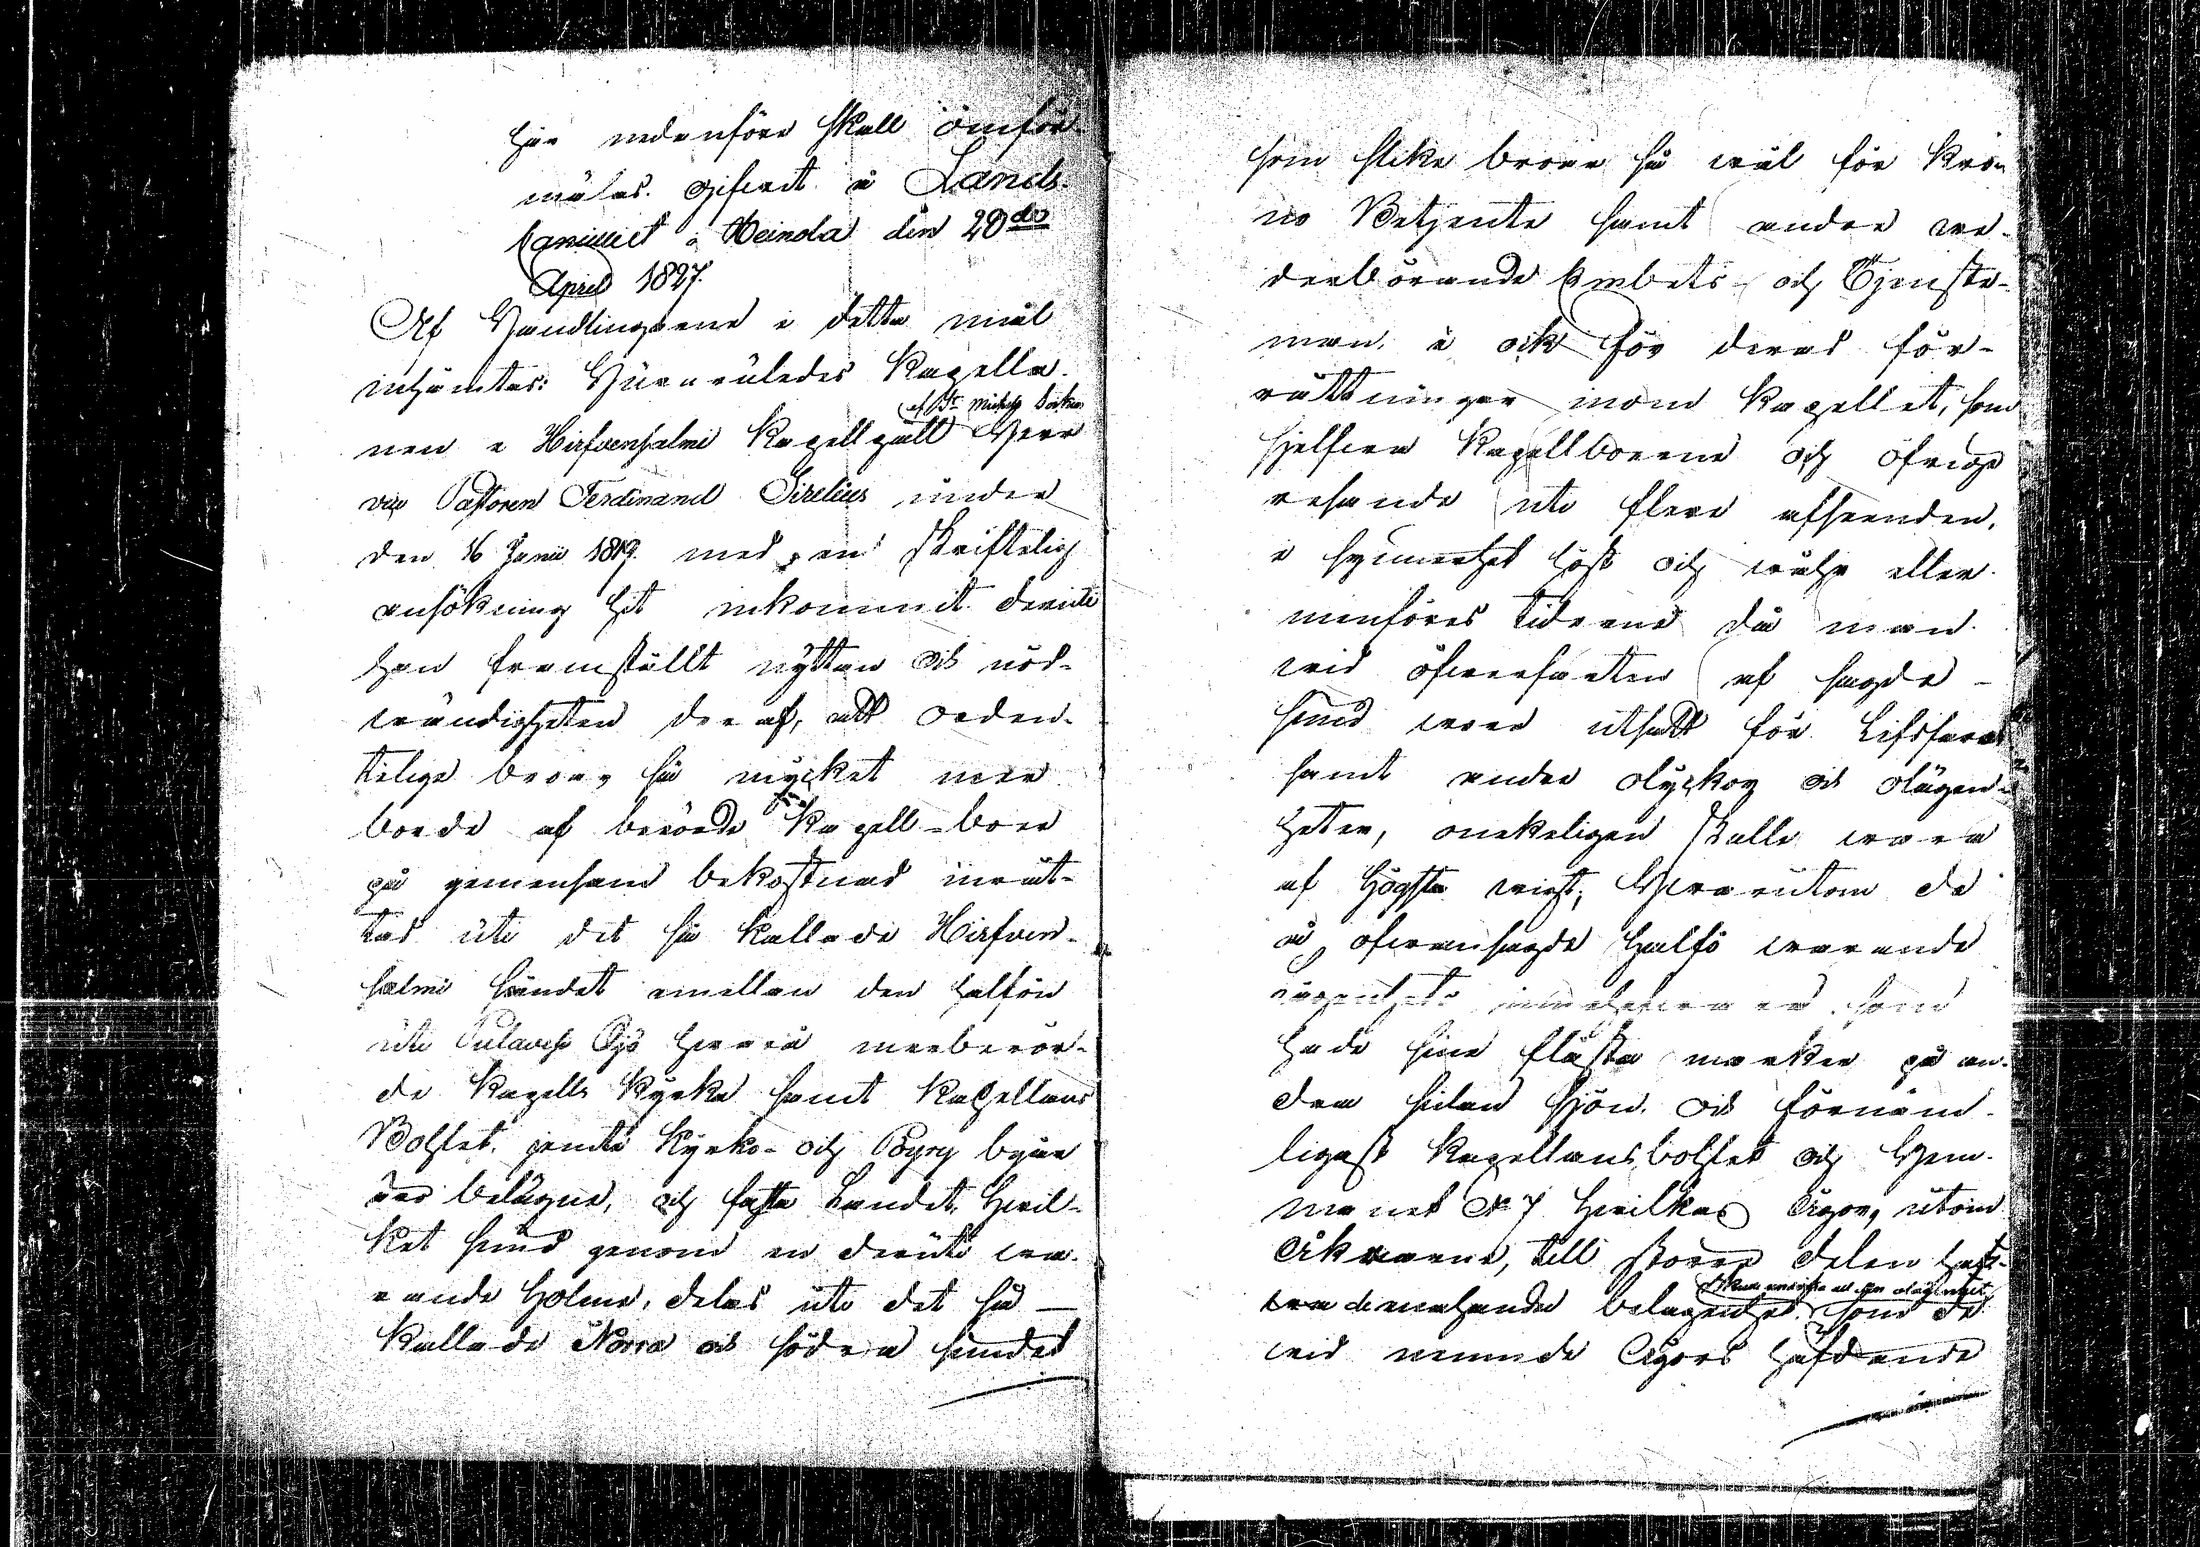 här nedanföre skall omför-
mälas. Gifvit å Lands-
Cancelliet i Heinola den 28de
April 1827.
Af Handlingarne i detta mål
inhämtas: Hurusåledes Kapella-
af St Michels Sockn
nen i Hirfvensalmi Kapellgäll Herr
vice Pastoren Ferdinand Sirelius under
den 16 Junii 1819 med en skriftelig
ansökning hit inkommit deruti
han framställt nyttan och nöd-
vändigheten deraf, att orden-
telige broar så mycket mer
borde af berörde Kapell-boer
på gemensam bekostnad inrät-
tas uti det så kallade Hirfven-
salmi sundet emellan den halfön
uti Pulavesi Sjö hvarå merberör-
de Kapells Kyrka samt Kapellans
Bolstet, jemte Kyrko- och Pöyry byar
äro belägne, och fasta Landet, hvil-
ket sund genom en deruti va-
rande Holme, delas uti det så
kallade Norra och södra sundet
som slike broar så väl för kro-
no Betjente samt andre ve-
derbörande Embets- och Tjenste-
män, i och för deras för-
rättningar inom Kapellet, som
sjelfva Kapellboerne och öfrige
resande uti flere afseenden,
i synnerhet höst och vahr eller
menföres tiderne då man
vid öfverfarten af sagde
sund vore utsatt för Lifsfara
samt andre olyckor och olägen-
heter, onekeligen skulle vara
af högsta vigt; Hvarutom de
å ofvansagde halfö varande
som
hade sine flästa marker på an-
dra sidan sjön, och förnäm-
ligast Kapellansbolstet och Hem-
manet No 7 hvilkas Ägor, utom
Åkrarne, till större delen hafva
denahanda belägenhet som de
vid nemnde Ägors häfdande